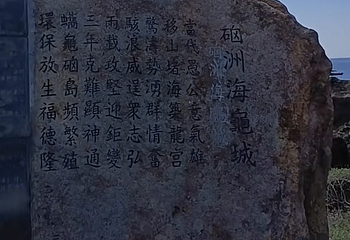 硇洲海龜城
當代愚公意氣雄
移山填海築龍宮
驚濤勢湧群情奮
駭浪威逞衆志弘
兩載攻堅迎鉅變
三年克難顯神通
蠵龜硇島頻繁殖
環保放生福德隆